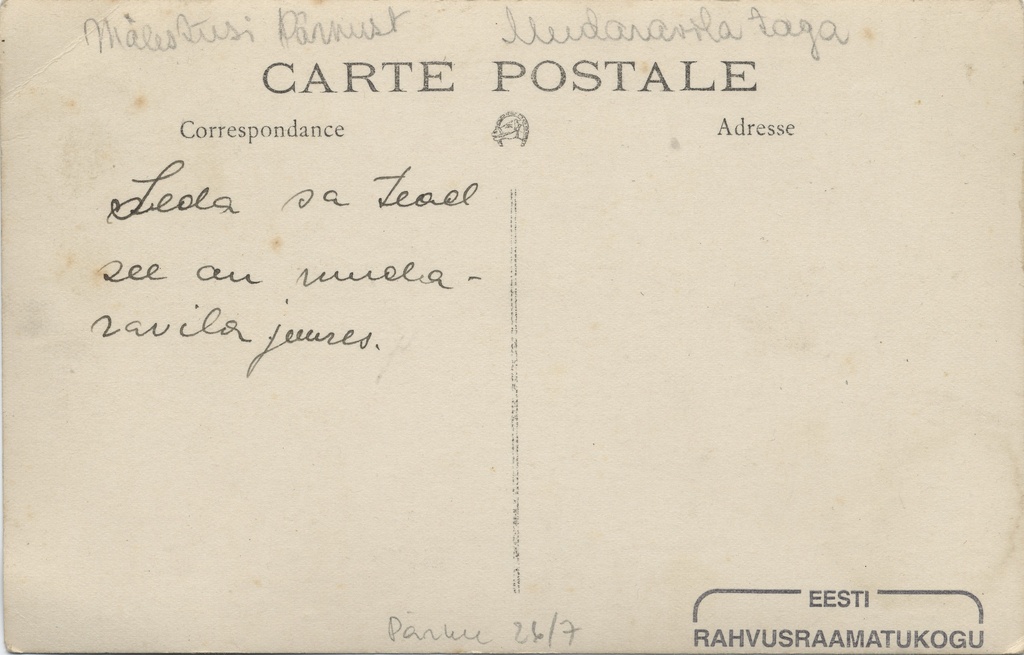 Mälestusi Pärnust Mudaravila taga
CARTE POSTALE
Correspondance Adresse
Seda sa tead
see on muda-
ravila juures.
Pärnu 26/7
EESTI
RAHVUSRAAMATUKOGU